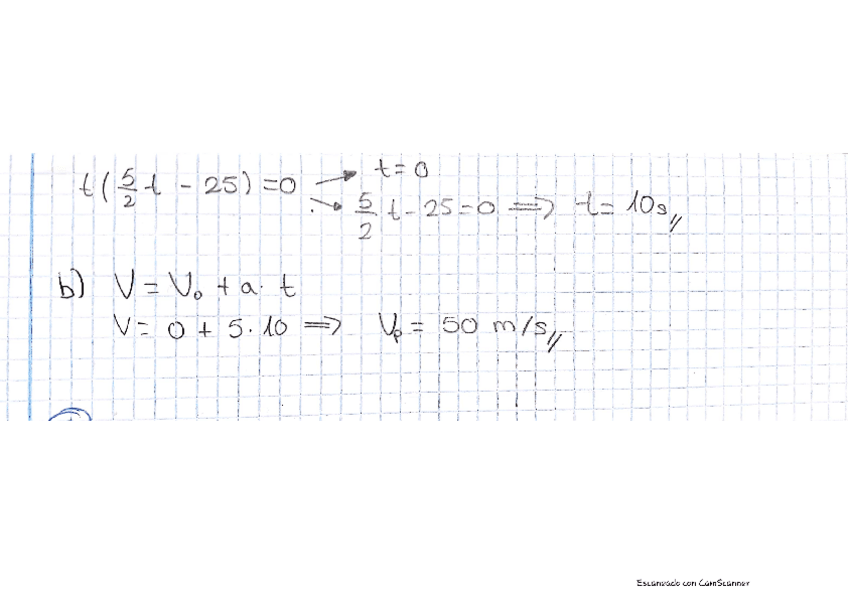 t(5/2 t - 25) = 0 → t = 0
↘ 5/2 t - 25 = 0 ⇒ t = 10s//
b) V = V₀ + a · t
V = 0 + 5 · 10 ⇒ Vp = 50 m/s//
Escaneado con CamScanner